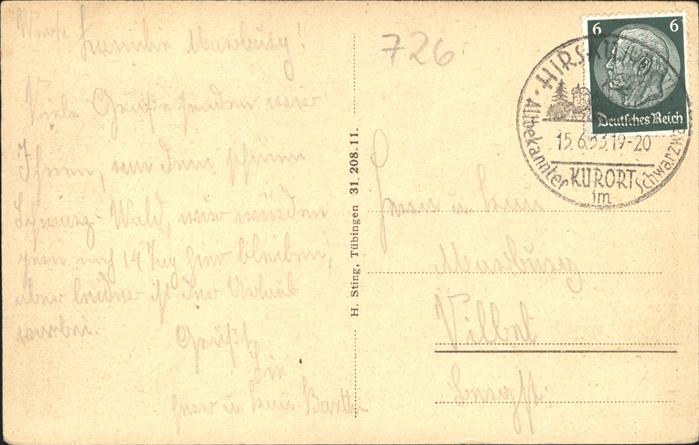 Werte Familie Marburg!
Viele Grüße senden wir
Ihnen, aus dem schönen
Schwarz-Wald, wir würden
gern noch 14 Tag hier bleiben,
aber leider ist der Urlaub
vorbei.
Grüßt
Frau u.
H. Sting, Tübingen 31 208.11.
726
6 6
Deutsches Reich
HIRSAU
15.6.33.19-20
Altbekannter
KURORT
im
Schwarzwald
Marburg
Vilbel